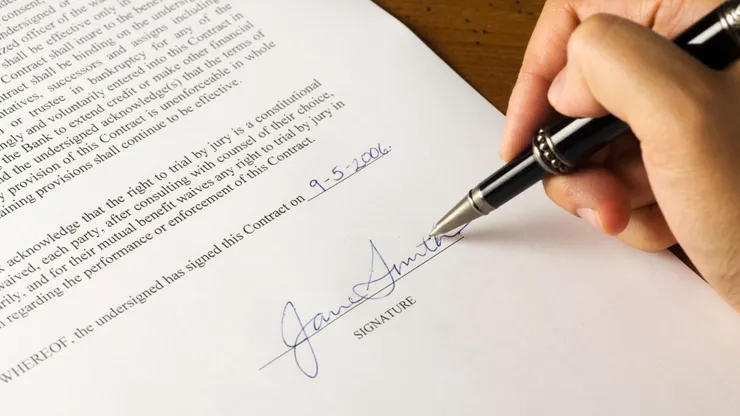 consent,
undersigned or
zed officer of the
shall be effective only in
Contract shall inure to the benefit
tract shall be binding on the undersigned
ntatives, successors and assigns including
or or trustee in bankruptcy for any of the
ingly and voluntarily entered into this Contract in
the Bank to extend credit or make other financial
nd the undersigned acknowledge(s) that the terms of
y provision of this Contract is unenforceable in whole
aining provisions shall continue to be effective.
acknowledge that the right to trial by jury is a constitutional
waived, each party, after consulting with counsel of their choice,
arily, and for their mutual benefit waives any right to trial by jury in
n regarding the performance or enforcement of this Contract.
WHEREOF, the undersigned has signed this Contract on 9-5-2006.
Jane Smith
SIGNATURE